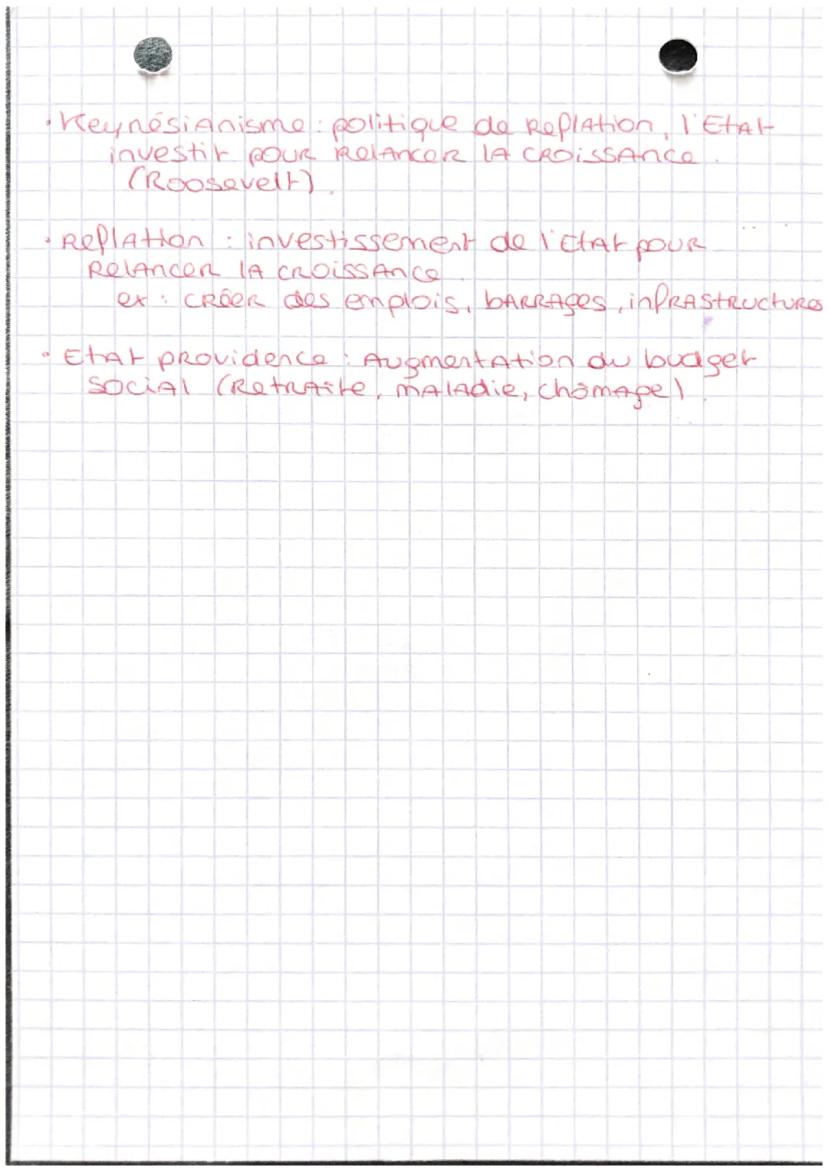 • Keynésianisme : politique de Reflation, l'Etat
investit pour Relancer la croissance.
(Roosevelt).
• Reflation : investissement de l'Etat pour
Relancer la croissance.
ex : créer des emplois, barrages, infrastructures
• Etat providence : Augmentation du budget
social (Retraite, maladie, chômage).